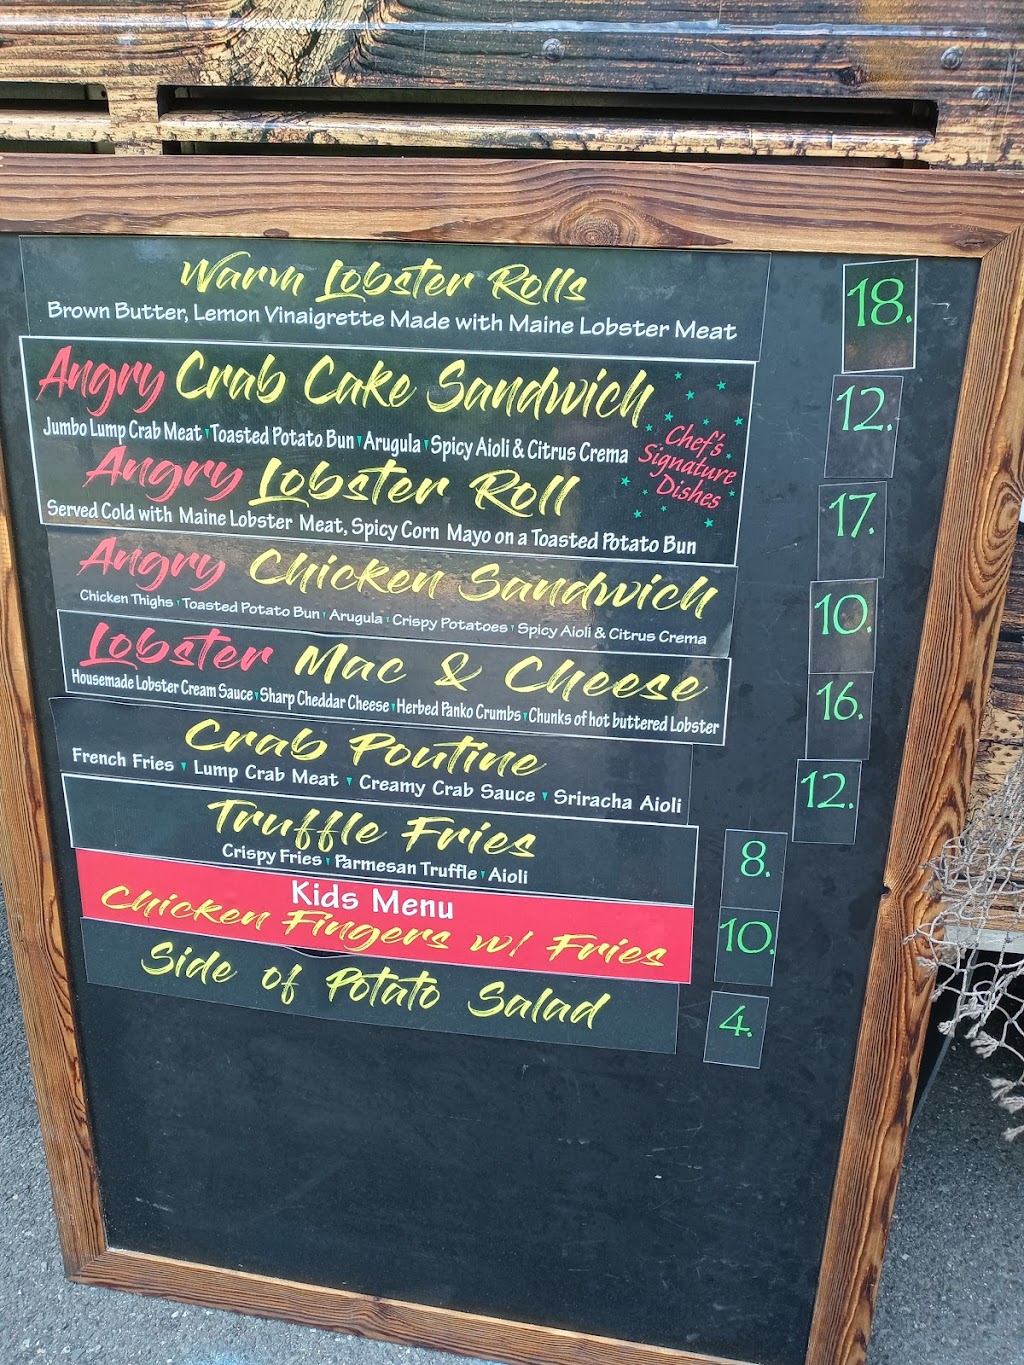 Warm Lobster Rolls 18.
Brown Butter, Lemon Vinaigrette Made with Maine Lobster Meat
Angry Crab Cake Sandwich 12.
Jumbo Lump Crab Meat Toasted Potato Bun Arugula Spicy Aioli & Citrus Crema
Chef's
Signature
Dishes
Angry Lobster Roll 17.
Served Cold with Maine Lobster Meat, Spicy Corn Mayo on a Toasted Potato Bun
Angry Chicken Sandwich 10.
Chicken Thighs Toasted Potato Bun Arugula Crispy Potatoes Spicy Aioli & Citrus Crema
Lobster Mac & Cheese 16.
Housemade Lobster Cream Sauce Sharp Cheddar Cheese Herbed Panko Crumbs Chunks of hot buttered Lobster
Crab Poutine 12.
French Fries Lump Crab Meat Creamy Crab Sauce Sriracha Aioli
Truffle Fries 8.
Crispy Fries Parmesan Truffle Aioli
Kids Menu
Chicken Fingers w/ Fries 10.
Side of Potato Salad 4.